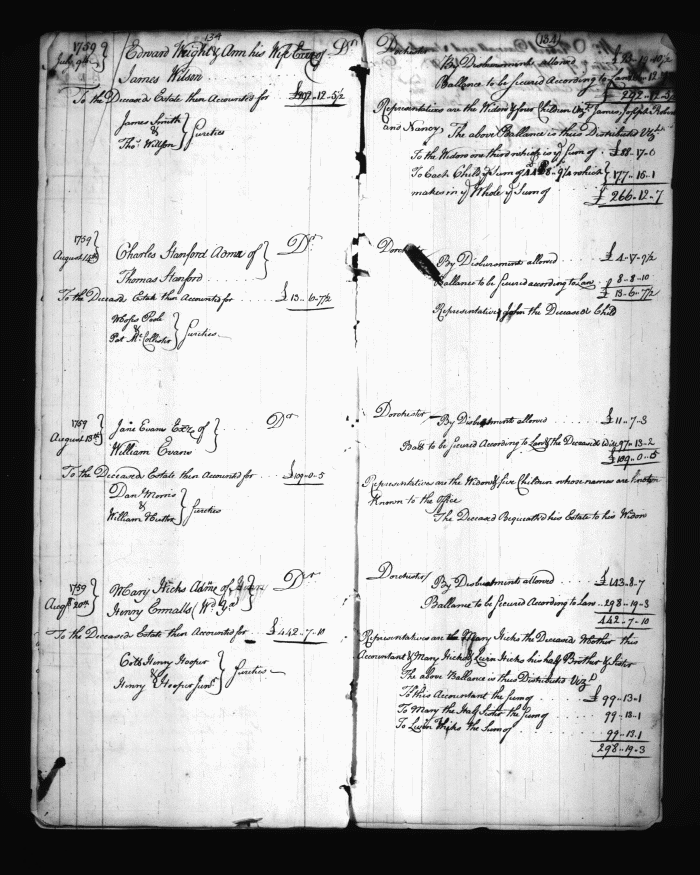 134
1759
July 9th
Edward Wright & Ann his Wife Exrs of Dr
James Wilson
To the Deceased Estate then Accounted for £292-12-5½
James Smith
&
Thos Willson
Sureties
1759
August 14th
Charles Stanford Admr of Dr
Thomas Stanford
To the Deceased Estate then Accounted for £13-6-7½
Moses Pool
Pat McCollister
Sureties
1759
August 15th
Jane Evans Exx of Dr
William Evans
To the Deceased Estate then Accounted for £109-0-5
Danl Morris
&
William Hutton
Sureties
1759
Augt 20th
Mary Hicks Admx of Dr
Henry Ennalls
To the Deceased Estate then Accounted for £442-7-10
Henry Hooper
&
Henry Hooper Junr
Sureties
(134)
Dorchester
By Disbursments allowed
Ballance to be Secured According to Law
£292-12-5½
Representatives are the Widow & four Children Vizt James, Joseph
and Nancy, The above Ballance is thus Distributed Vizt
To the Widow one third which is ye Sum of
To Each Child ye Sum of which 177-16-1
makes in ye Whole ye Sum of £266-12-7
By Disbursments allowed £4-17-9½
Ballance to be Secured according to Law 8-8-10
£13-6-7½
Representative John the Deceaseds Child
Dorchester
By Disbursments allowed £11-7-3
Balls to be Secured According to Law & the Deceaseds Will 97-13-2
£109-0-5
Representatives are the Widow & five Children whose names are
Known to the office
The Deceased Bequeathed his Estate to his Widow
Dorchester
By Disbursments allowed £143-8-7
Ballance to be Secured According to Law 298-19-3
442-7-10
Representatives are Mary Hicks the Deceaseds Mother this
Accountant & Mary Hicks & Levin Hicks his half Brother & Sister
The above Ballance is thus Distributed Vizt
To this Accountant the Sum of £99-13-1
To Mary the Half Sister the Sum of 99-13-1
To Levin Hicks the Sum of 99-13-1
298-19-3